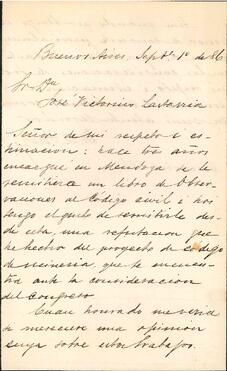 Buenos Aires, Sept. 1º de 86
Sr. Dn.
José Victorino Lastarria
Señor de mi respeto i es-
timacion: hace tres años
encargué en Mendoza se le
remitiera un libro de Obser-
vaciones al Código civil i hoi
tengo el gusto de remitirle des-
de esta, una refutacion que
he hecho del proyecto de código
de mineria, que se encuen-
tra ante la consideracion
del Congreso
Cuan honrado me veria
si mereciere una opinion
suya sobre estos trabajos.